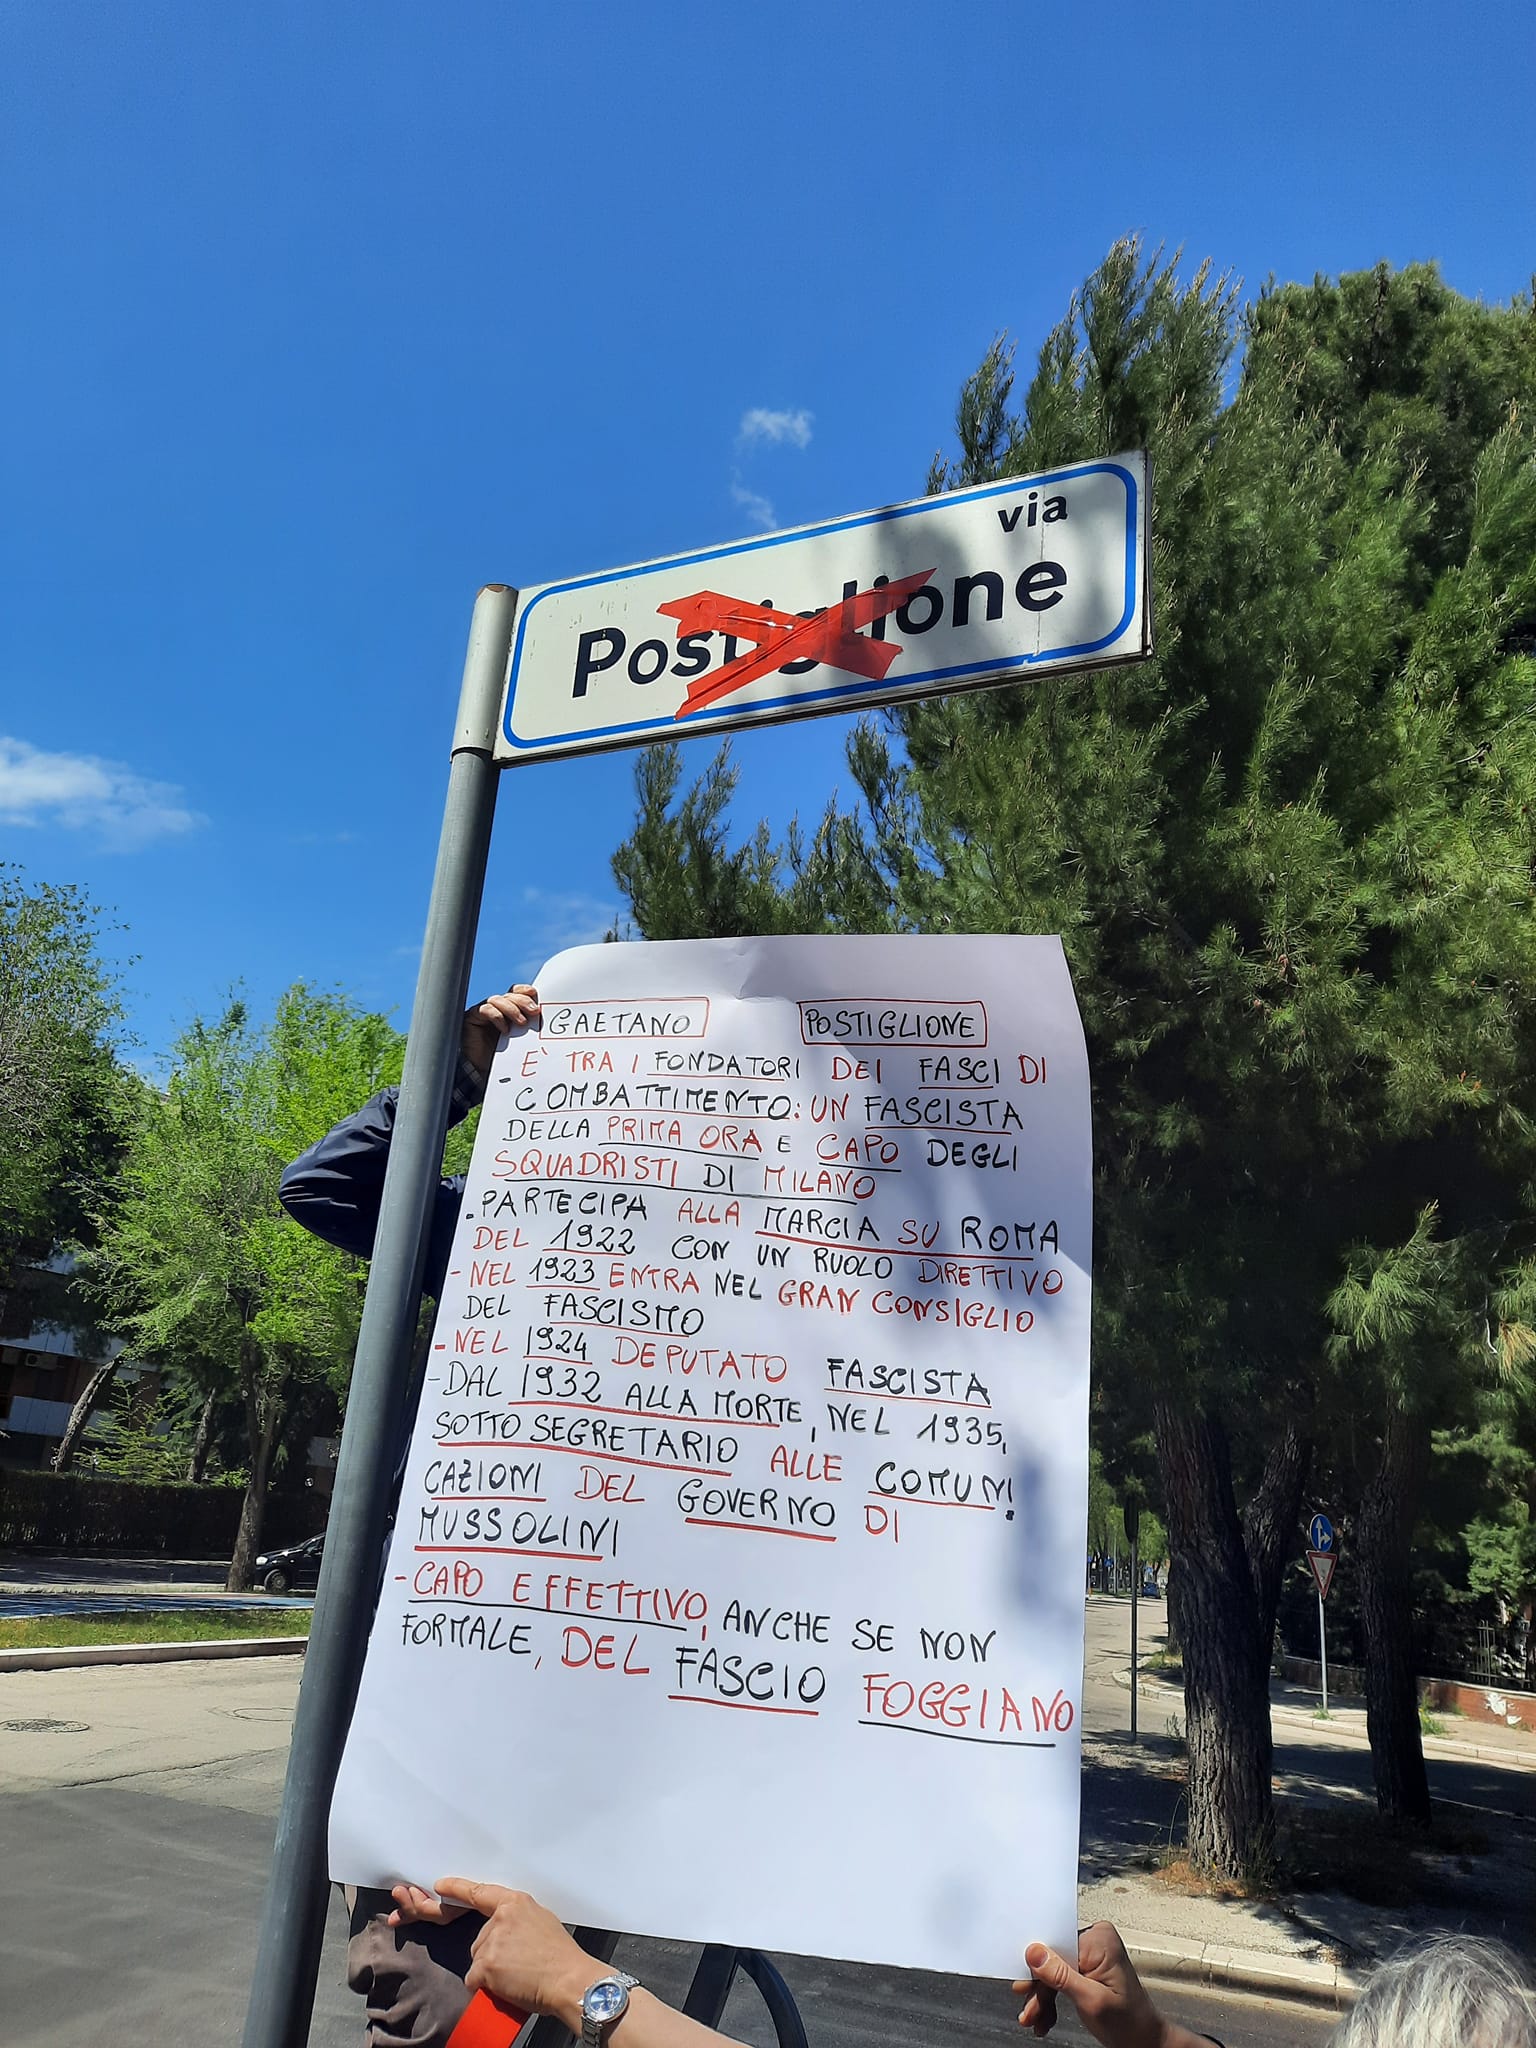 via
Postiglione
GAETANO POSTIGLIONE
- È TRA I FONDATORI DEI FASCI DI
COMBATTIMENTO: UN FASCISTA
DELLA PRIMA ORA E CAPO DEGLI
SQUADRISTI DI MILANO
- PARTECIPA ALLA MARCIA SU ROMA
DEL 1922 CON UN RUOLO DIRETTIVO
- NEL 1923 ENTRA NEL GRAN CONSIGLIO
DEL FASCISMO
- NEL 1924 DEPUTATO FASCISTA
- DAL 1932 ALLA MORTE, NEL 1935,
SOTTOSEGRETARIO ALLE COMUNI
CAZIONI DEL GOVERNO DI
MUSSOLINI
- CAPO EFFETTIVO, ANCHE SE NON
FORMALE, DEL FASCIO FOGGIANO